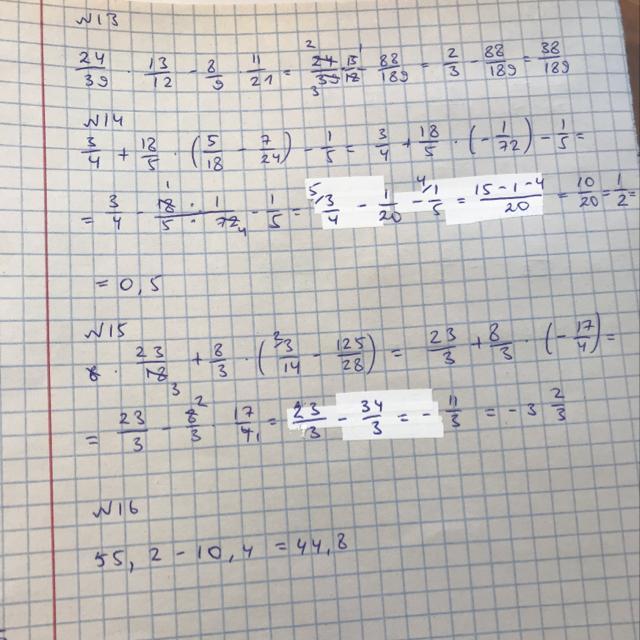 N13
24/39 · 13/12 - 8/9 · 11/21 = 24/39 · 13/12 - 88/189 = 2/3 - 88/189 = 38/189
N14
3/4 + 18/5 · (5/18 - 7/24) - 1/5 = 3/4 + 18/5 · (-1/72) - 1/5 =
= 3/4 - 18 · 1/5 · 72 - 1/5 = 3/4 - 1/20 - 1/5 = 15-1-4/20 = 10/20 = 1/2 =
= 0,5
N15
6 · 23/18 + 8/3 · (3/14 - 125/28) = 23/3 + 8/3 · (-17/4) =
= 23/3 - 8/3 · 17/4 = 23/3 - 34/3 = -11/3 = -3 2/3
N16
55,2 - 10,4 = 44,8